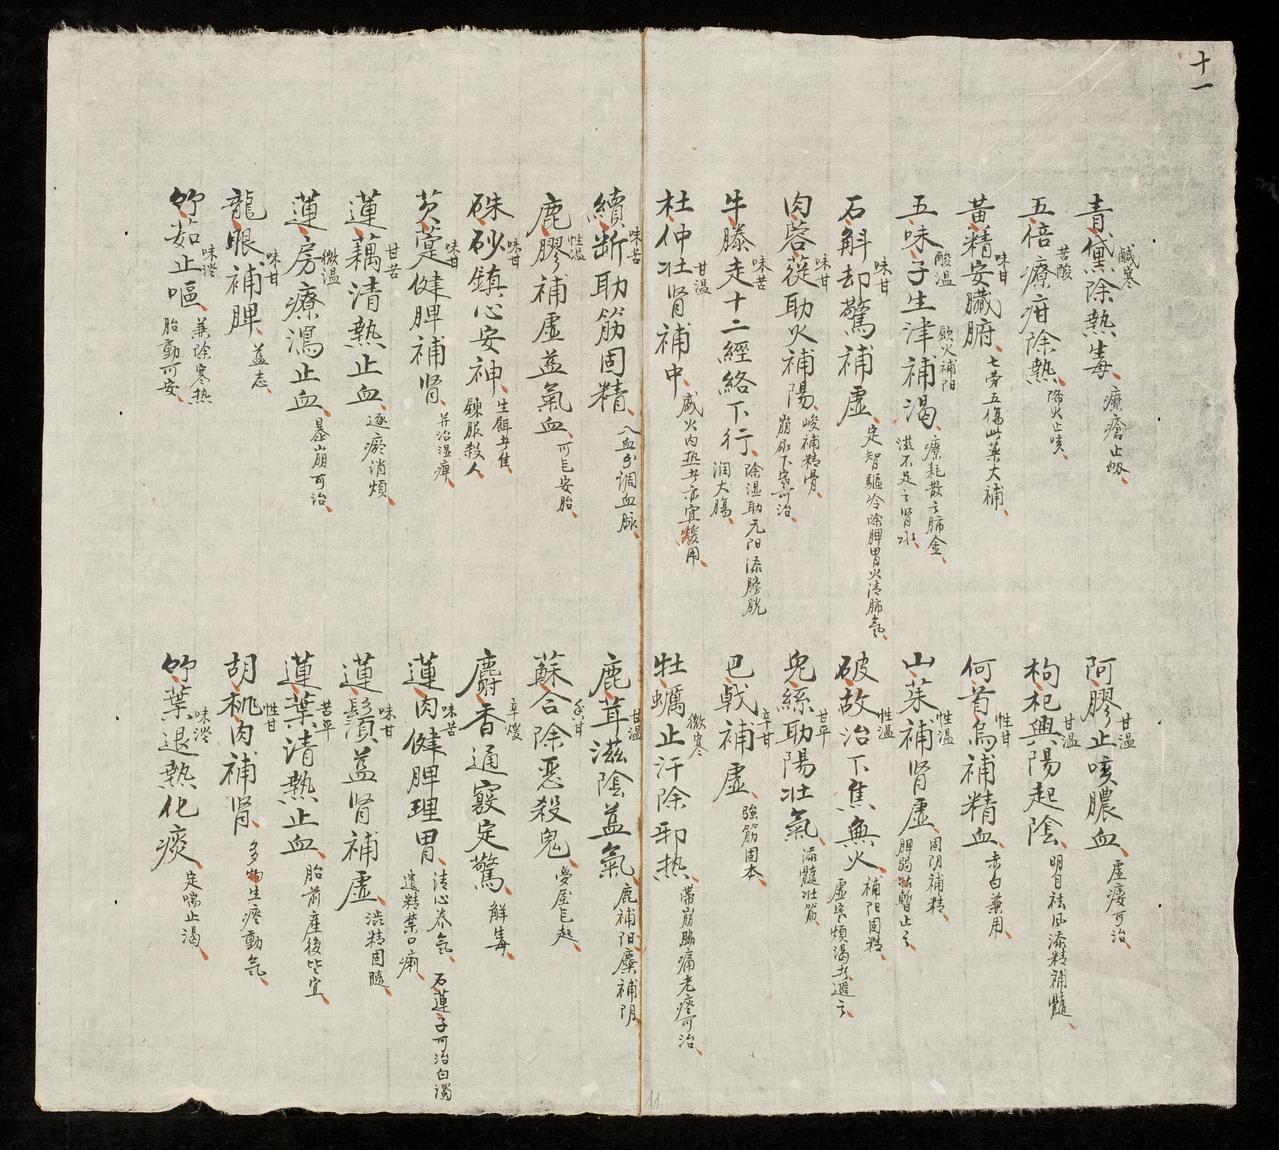 十一
青黛除熱毒 鹹寒 療瘡止衂
五倍療疳除熱 苦酸 降火止咳
黃精安臟腑 味甘 七勞五傷此藥大補
五味子生津補渴 酸温 歛火補阳 療耗散之肺金 滋不足之肾水
石斛却驚補虛 味甘 定智驅冷除脾胃火清肺氣
肉蓉蓯助火補陽 味甘 峻補精骨 崩尿下寔可治
牛膝走十二經絡下行 味苦 除湿助元阳添膀胱 润大腸
杜仲壮肾補中 甘温 感火内热者亦宜緩用
續断助筋固精 味苦 入血分調血脉
鹿膠補虛益氣血 性温 可已安胎
硃砂鎮心安神 味甘 生餌者佳 鍊服殺人
芡薏健脾補肾 味甘 并治湿痺
蓮藕清熱止血 甘苦 逐瘀消煩
蓮房療瀉止血 微温 暴崩可治
龍眼補脾 味甘 益志
竹茹止嘔 味淡 兼除寒热 胎動可安
阿膠止咳膿血 甘温 虛痿可治
枸杞興陽起陰 甘温 明目祛风添精補髓
何首烏補精血 性甘 赤白兼用
山茱補肾虛 性温 固阴補精 脾弱者暫止之
破故治下焦無火 性温 補阳固精 虛寒煩渴者避之
兔絲助陽壮氣 甘平 添髓壮筋
巴戟補虛 辛甘 強筋固本
牡蠣止汗除邪热 微寒 帶崩脇痛老痰可治
鹿茸滋陰益氣 甘温 鹿補阳麋補阴
蘇合除惡殺鬼 香甘 夢魘已起
麝香通竅定驚 辛煖 解毒
蓮肉健脾理胃 味苦 清心养氣 遺精禁口痢 石蓮子可治白濁
蓮鬚益肾補虛 味甘 渋精固髓
蓮葉清熱止血 苦平 胎前產後皆宜
胡桃肉補肾 性甘 多物生痰動氣
竹葉退熱化痰 味淡 定喘止渴
11